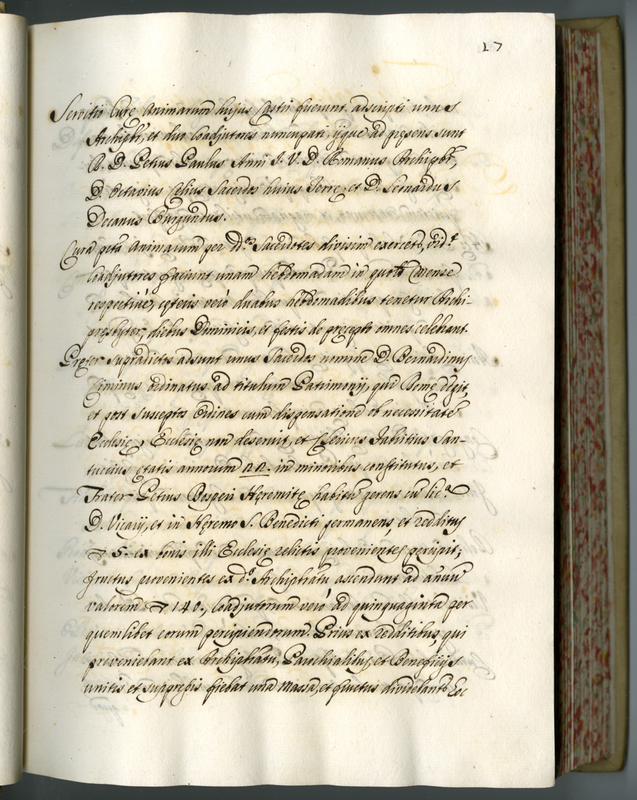 27
Servitio Curę Animarum hujus Castri fuerunt adscripti unus
Archipbr, et duo Coadjutores nuncupati, ijque ad pręsens sunt
R. D. Petrus Paulus Anni J. V. D. Romanus Archipbr,
D. Octavius Celius Sacerdos huius Terrę, et D. Leonardus
Decanus Burgundus.
Cura pcta Animarum per d.os Sacerdotes divisim exercetr,
Coadjutores faciunt unam hebdomadam in quolt mense
respectivè, cęteris verò duabus hebdomadibus tenetur Archi-
presbyter, diebus Dominicis, et festis de pręcepto omnes celebrant.
Pręter supradictos adsunt unus Sacerdos nomine D. Bernardinus
ordinatus ad titulum Patrimonij, qui Romę degit,
et post susceptos Ordines cum dispensatione ob necessitatē
Ecclesię, Ecclesię non deservit, et Clericus Santuccius
ętatis annorum 22. in minoribus constitutus, et
Frater Petrus Heremitę habitū gerens cū lic.a
D. Vicarij, et in Heremo S. Benedicti permanens, et redditus
5. ex bonis illi Ecclesię relictis provenientes percipit,
fructus provenientes ex d.o Archiprbatu ascendunt ad annuū
valorem 140., Coadjutorum verò ad quinquaginta per
quemlibet eorum percipiendorum. Prius ex redditibus, qui
proveniebant ex Archiprbatu, Parochialibus, et Beneficijs
unitis et suppressis fiebat una Massa, et fructus dividebantr